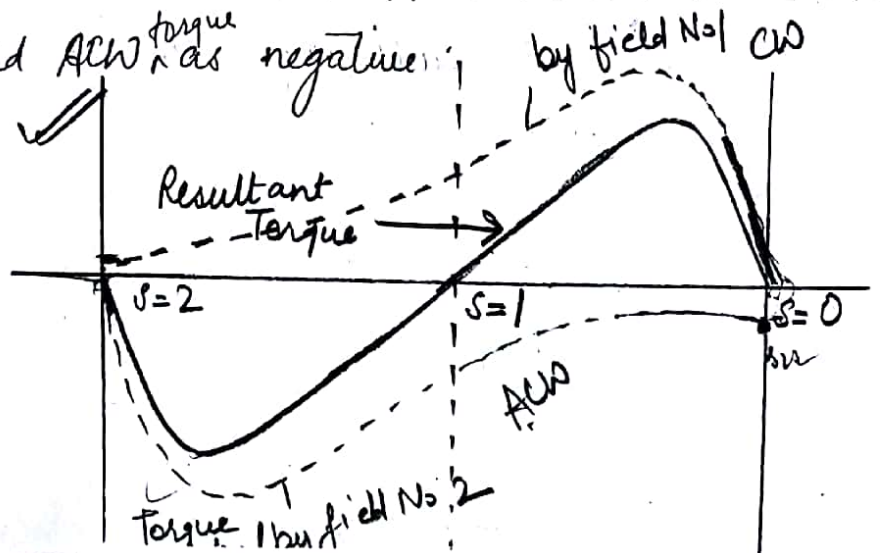 d ACW torque as negative
by field No1 CW
Resultant
Torque
S=2
S=1
S=0
ACW
Torque by field No. 2